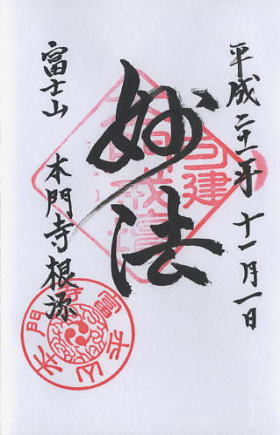 平成二十一年十一月一日
妙法
富士山
本門寺根源